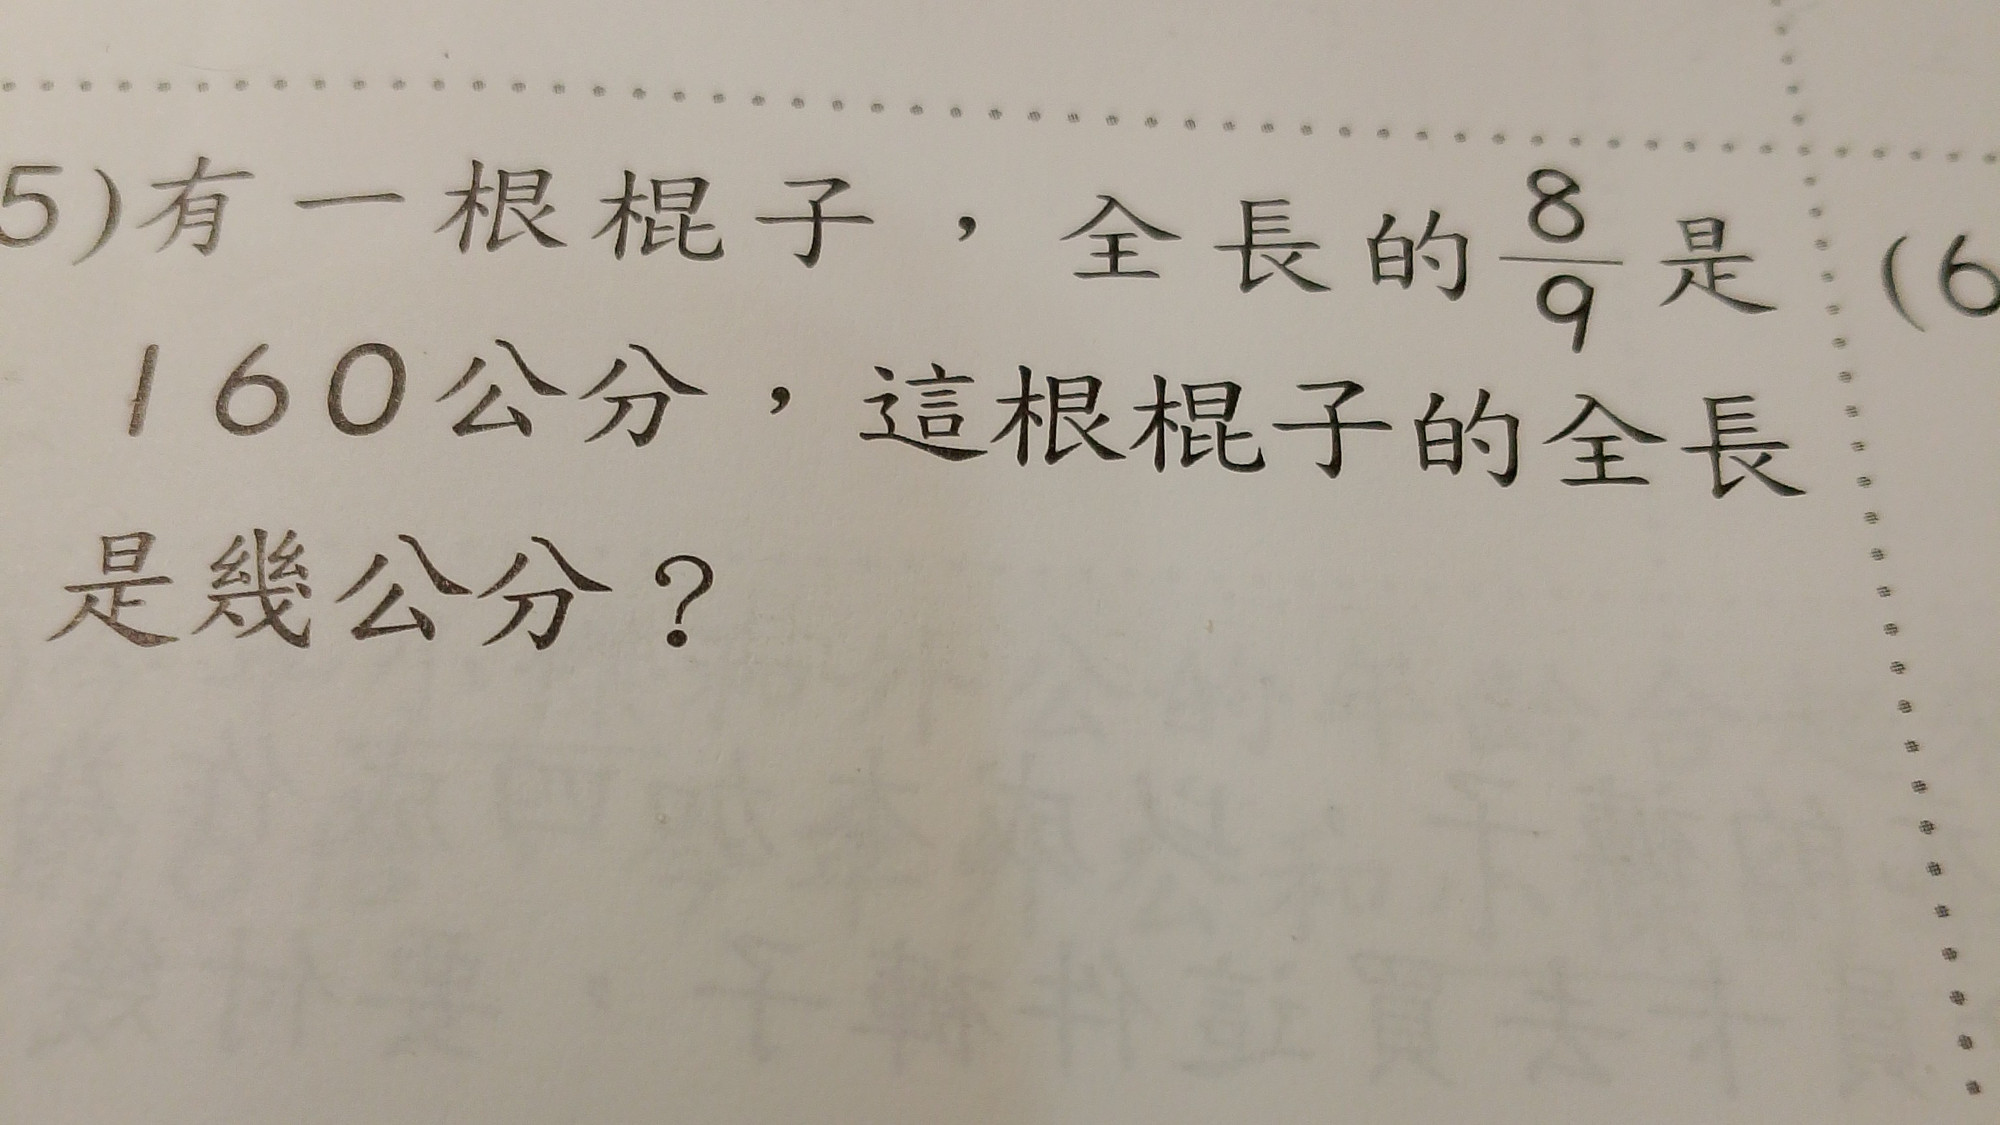 5)有一根棍子，全長的8/9是
160公分，這根棍子的全長
是幾公分？
(6